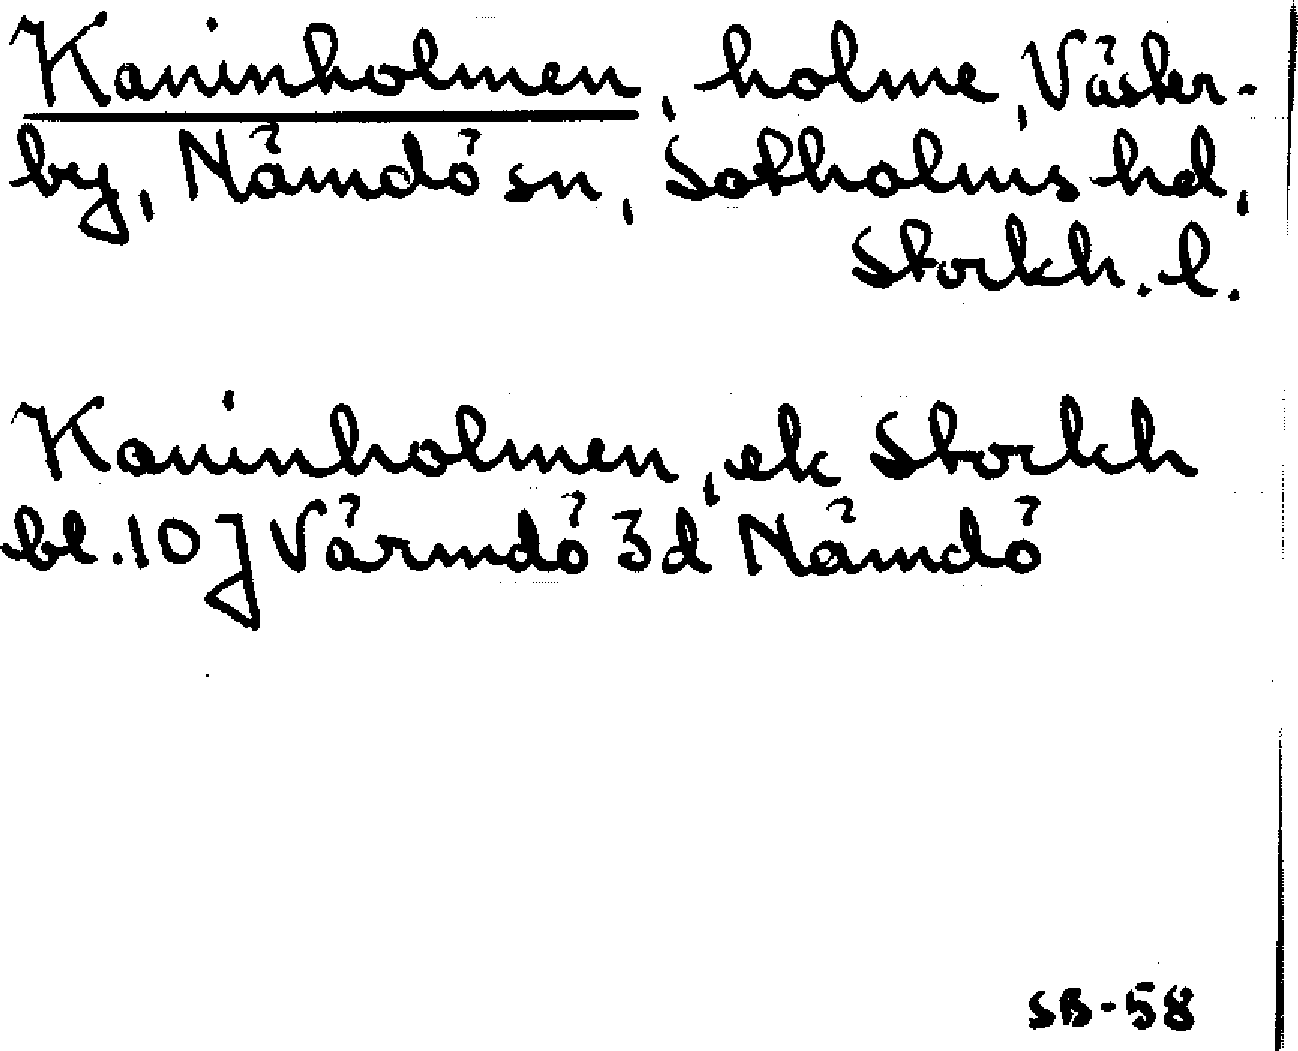 Kaninholmen, holme, Väster-
by, Nämdö sn, Sotholms hd,
Stockh. l.
Kaninholmen, ek Stockh
bl. 10 J Värmdö 3d Nämdö
SB-58